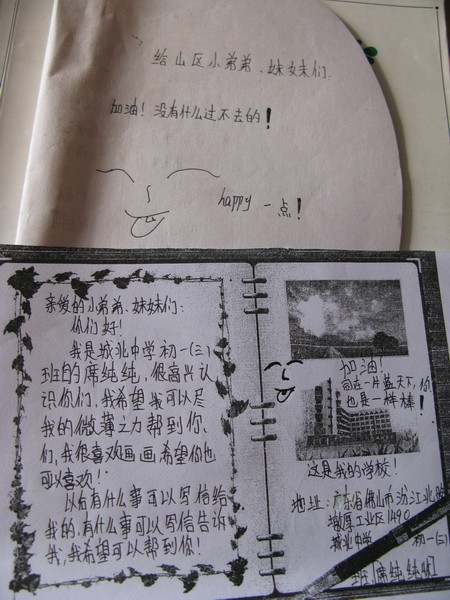 给山区小弟弟、妹妹们.
加油！没有什么过不去的！
happy 一点！
亲爱的小弟弟、妹妹们:
你们好！
我是城北中学初一(三)
班的席纯纯，很高兴认
识你们，我希望我可以尽
我的微薄之力帮到你
们，我很喜欢画画希望你也
可以喜欢！
以后有什么事可以写信给
我的，有什么事可以写信告诉
我，我希望可以帮到你！
加油！
同在一片蓝天下，你
也是一样棒！
这是我的学校！
地址：广东省佛山市汾江北路
敦厚工业区1490
城北中学 初一(三)
班[席纯纯收]